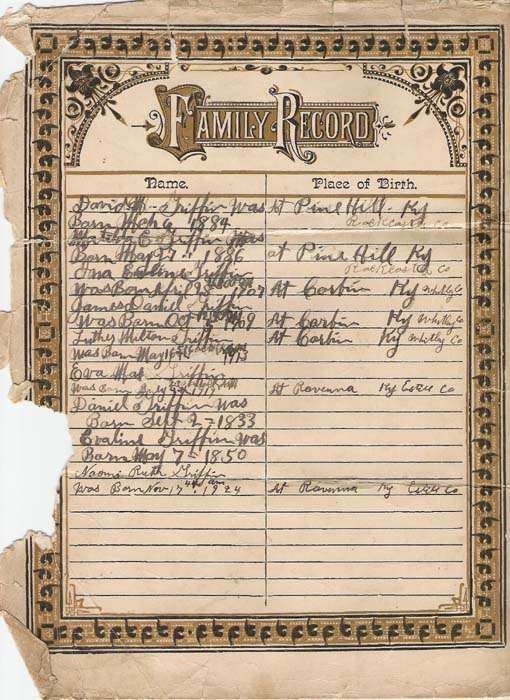 FAMILY RECORD
Name. Place of Birth.
David Griffin Was At Pine Hill Ky
Born 6 1884 Rockcastle Co
E Griffin Was
Born May 7 1886 at Pine Hill Ky
Griffin Rockcastle Co
Was Born April 1907 At Corbin Ky Whitley Co
James Daniel Griffin
Was Born Oct 1909 At Corbin Ky Whitley Co
Luther Milton Griffin At Corbin Ky Whitley Co
Was Born May 16 1913
Eva Mae Griffin
Was Born At Ravenna Ky Estill Co
Daniel Griffin Was
Born Sept 2 - 1833
Evaline Griffin Was
Born May 7 - 1850
Naomi Ruth Griffin
Was Born Nov 17th 1924 At Ravenna Ky Estill Co